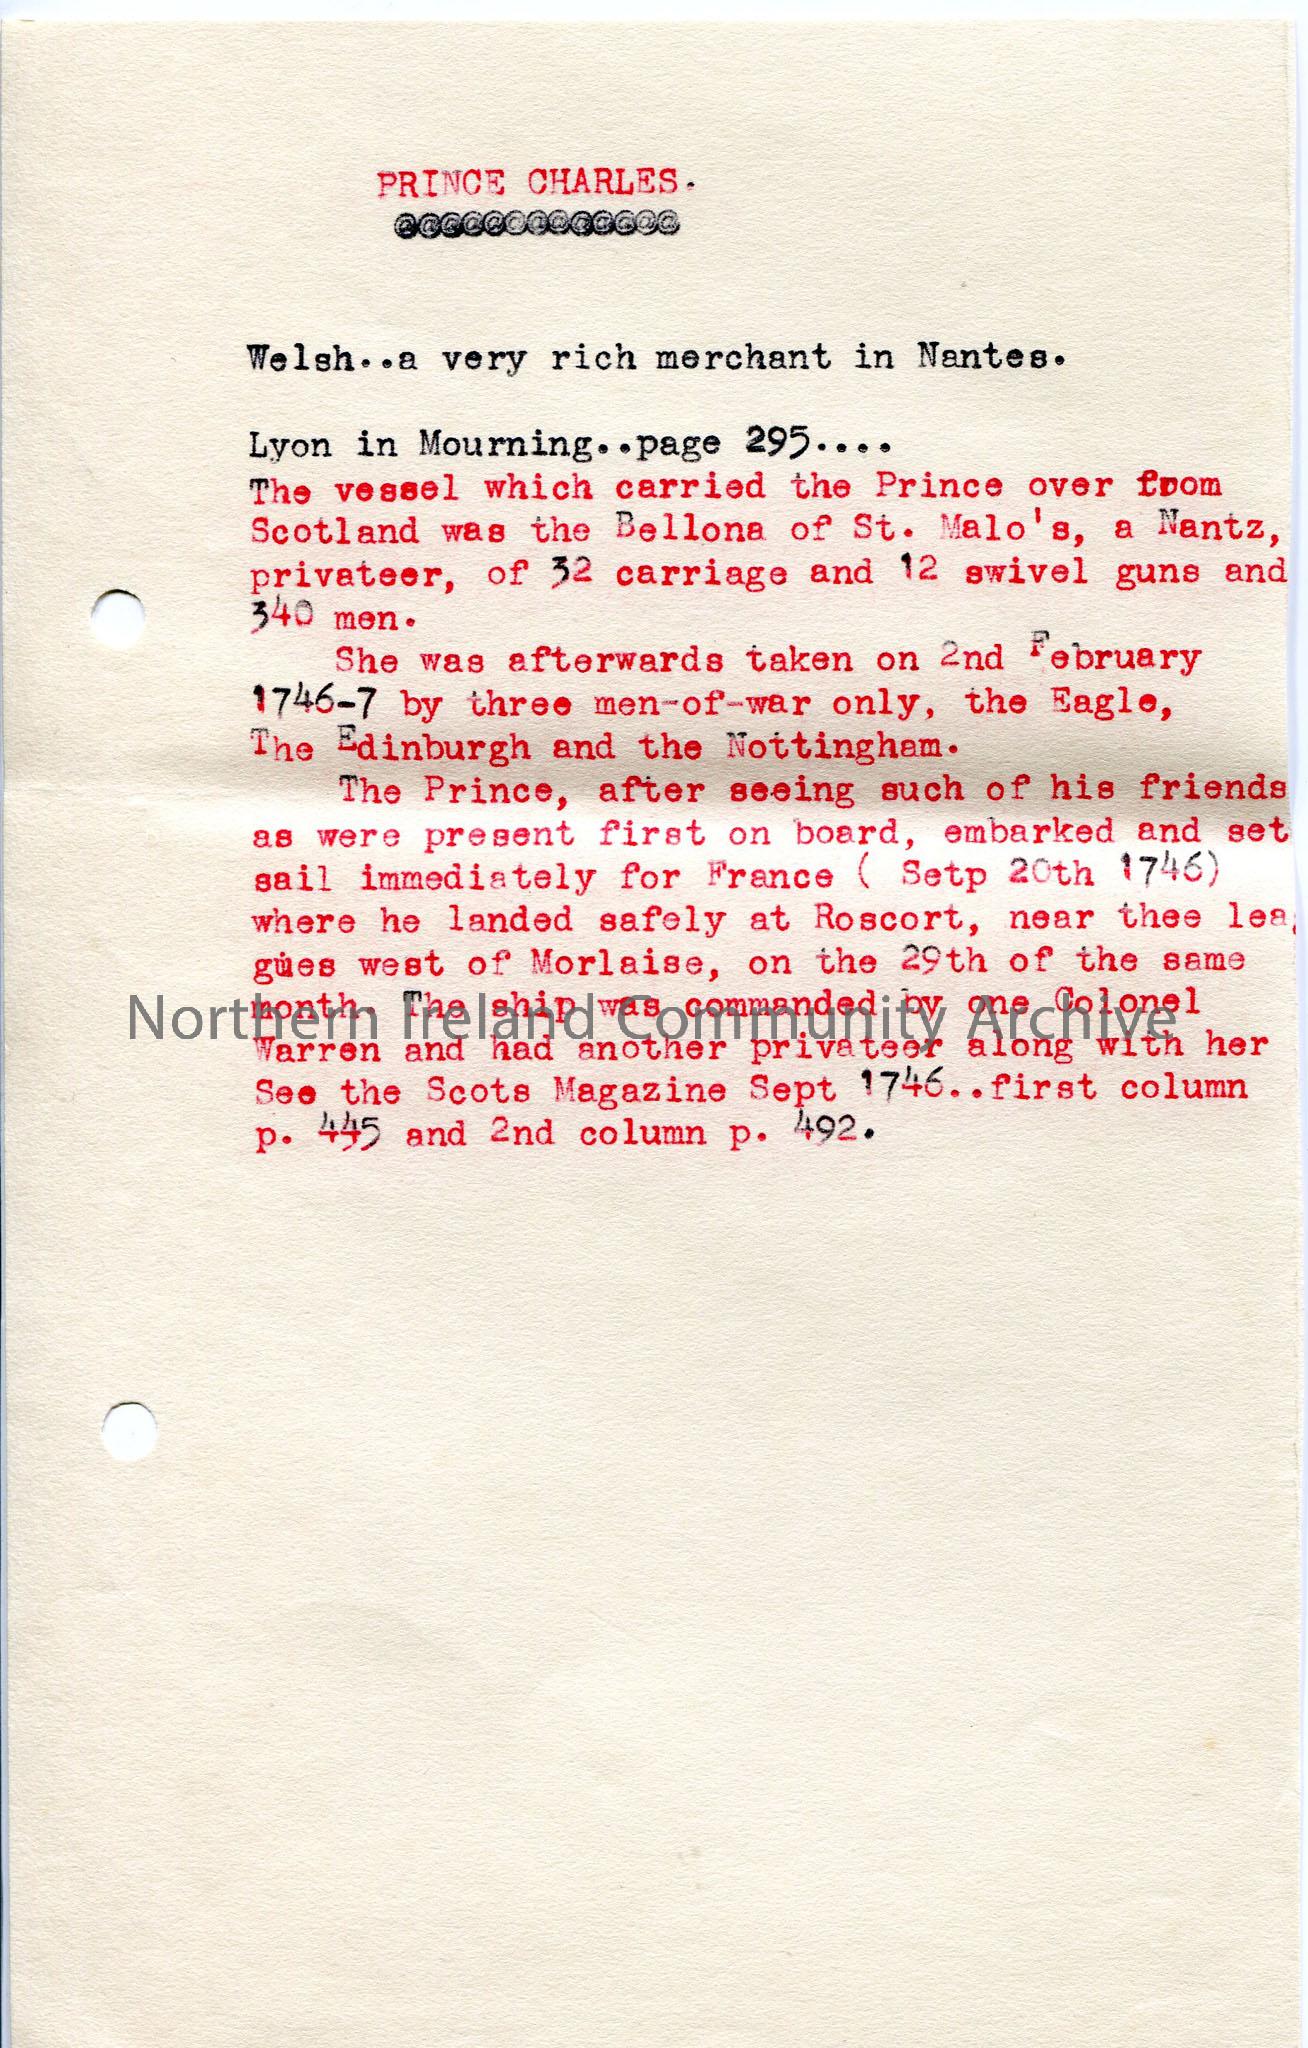 PRINCE CHARLES.
@@@@@@@@@@@@@
Welsh..a very rich merchant in Nantes.
Lyon in Mourning..page 295....
The vessel which carried the Prince over from
Scotland was the Bellona of St. Malo's, a Nantz,
privateer, of 32 carriage and 12 swivel guns and
340 men.
She was afterwards taken on 2nd February
1746-7 by three men-of-war only, the Eagle,
The Edinburgh and the Nottingham.
The Prince, after seeing such of his friends
as were present first on board, embarked and set
sail immediately for France ( Setp 20th 1746)
where he landed safely at Roscort, near thee lea
gues west of Morlaise, on the 29th of the same
month. The ship was commanded by one Colonel
Northern Ireland Community Archive
Warren and had another privateer along with her
See the Scots Magazine Sept 1746..first column
p. 445 and 2nd column p. 492.